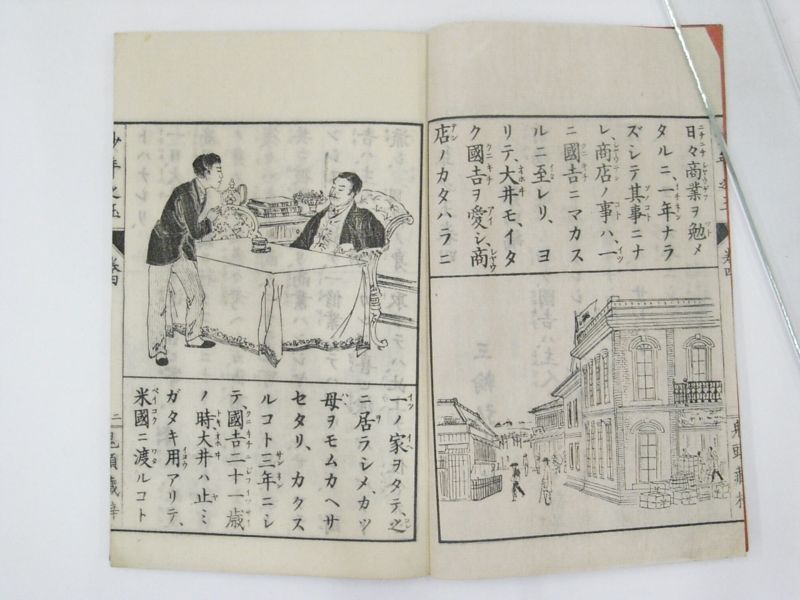 日々商業ヲ勉メ
タルニ、一年ナラ
ズシテ其事ニナ
レ、商店ノ事ハ、一
ニ國吉ニマカス
ルニ至レリ、ヨ
リテ、大井モ、イタ
ク國吉ヲ愛シ、商
店ノカタハラニ
一ノ家ヲタテ、之
ニ居ラシメ、カツ
母ヲモムカヘサ
セタリ、カクス
ルコト三年ニシ
テ、國吉二十一歳
ノ時、大井ハ止ミ
ガタキ用アリテ、
米國ニ渡ルコト
少年之玉
卷四
二